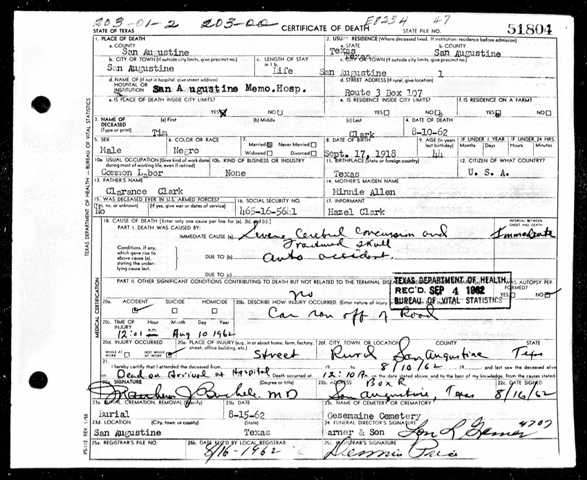 203-01-2 203-00 E8234 47
STATE OF TEXAS CERTIFICATE OF DEATH STATE FILE NO. 51804
1. PLACE OF DEATH 2. USUAL RESIDENCE (Where deceased lived. If institution: residence before admission)
a. COUNTY San Augustine a. STATE Texas b. COUNTY San Augustine
b. CITY OR TOWN (If outside city limits, give precinct no.) San Augustine c. LENGTH OF STAY life c. CITY OR TOWN (If outside city limits, give precinct no.) San Augustine 1
d. NAME OF (If not in hospital, give street address) HOSPITAL OR INSTITUTION San Augustine Memo. Hosp. d. STREET ADDRESS (If rural, give location) Route 3 Box 107
e. IS PLACE OF DEATH INSIDE CITY LIMITS? YES NO e. IS RESIDENCE INSIDE CITY LIMITS? YES NO f. IS RESIDENCE ON A FARM? YES NO
3. NAME OF DECEASED (Type or print) (a) First Tim (b) Middle (c) Last Clark 4. DATE OF DEATH 8-10-62
5. SEX Male 6. COLOR OR RACE Negro 7. Married Never Married Widowed Divorced 8. DATE OF BIRTH Sept. 17, 1918 9. AGE (In years last birthday) 44 IF UNDER 1 YEAR Months Days IF UNDER 24 HRS. Hours Min.
10a. USUAL OCCUPATION (Give kind of work done during most of working life, even if retired) Common Labor 10b. KIND OF BUSINESS OR INDUSTRY None 11. BIRTHPLACE (State or foreign country) Texas 12. CITIZEN OF WHAT COUNTRY? U. S. A.
13. FATHER'S NAME Clarance Clark 14. MOTHER'S MAIDEN NAME Minnie Allen
15. WAS DECEASED EVER IN U.S. ARMED FORCES? (Yes, no, or unknown) No (If yes, give war or dates of service) 16. SOCIAL SECURITY NO. 465-16-5641 17. INFORMANT Hazel Clark
18. CAUSE OF DEATH (Enter only one cause per line for (a), (b), and (c).) INTERVAL BETWEEN ONSET AND DEATH
PART I. DEATH WAS CAUSED BY: IMMEDIATE CAUSE (a) Severe Cerebral Concussion and Fractured skull Immediate
Conditions, if any, which gave rise to above cause (a), stating the underlying cause last. DUE TO (b) auto accident.
DUE TO (c)
PART II. OTHER SIGNIFICANT CONDITIONS CONTRIBUTING TO DEATH BUT NOT RELATED TO THE TERMINAL DISEASE 19. WAS AUTOPSY PERFORMED? YES NO
no
TEXAS DEPARTMENT OF HEALTH
REC'D SEP 4 1962
BUREAU OF VITAL STATISTICS
20a. ACCIDENT SUICIDE HOMICIDE 20b. DESCRIBE HOW INJURY OCCURRED. (Enter nature of injury
Car ran off of Road
20c. TIME OF INJURY Hour Month Day Year 12:01 Aug 10 1962
20d. INJURY OCCURRED WHILE AT WORK NOT WHILE AT WORK 20e. PLACE OF INJURY (e.g., in or about home, farm, factory, street, office building, etc.) Street 20f. CITY, TOWN, OR LOCATION Rural COUNTY San Augustine STATE Tex
21. I hereby certify that I attended the deceased from to 8/10/62 and last saw the deceased alive
Dead on Arrival at Hospital Death occurred at 12:10 A. m. on the date stated above, and to the best of my knowledge, from the causes stated.
22a. SIGNATURE (Degree or title) MD 22b. ADDRESS Box R San Augustine, Texas 22c. DATE SIGNED 8/16/62
23a. BURIAL, CREMATION, REMOVAL (Specify) Burial 23b. DATE 8-15-62 23c. NAME OF CEMETERY OR CREMATORY Gesemaine Cemetery
23d. LOCATION (City, town, or county) San Augustine (State) Texas 24. FUNERAL DIRECTOR'S SIGNATURE arner & Son 4707
25a. REGISTRAR'S FILE NO. 25b. DATE REC'D BY LOCAL REGISTRAR 8/16-1962 25c. REGISTRAR'S SIGNATURE
TEXAS DEPARTMENT OF HEALTH - BUREAU OF VITAL STATISTICS
MEDICAL CERTIFICATION